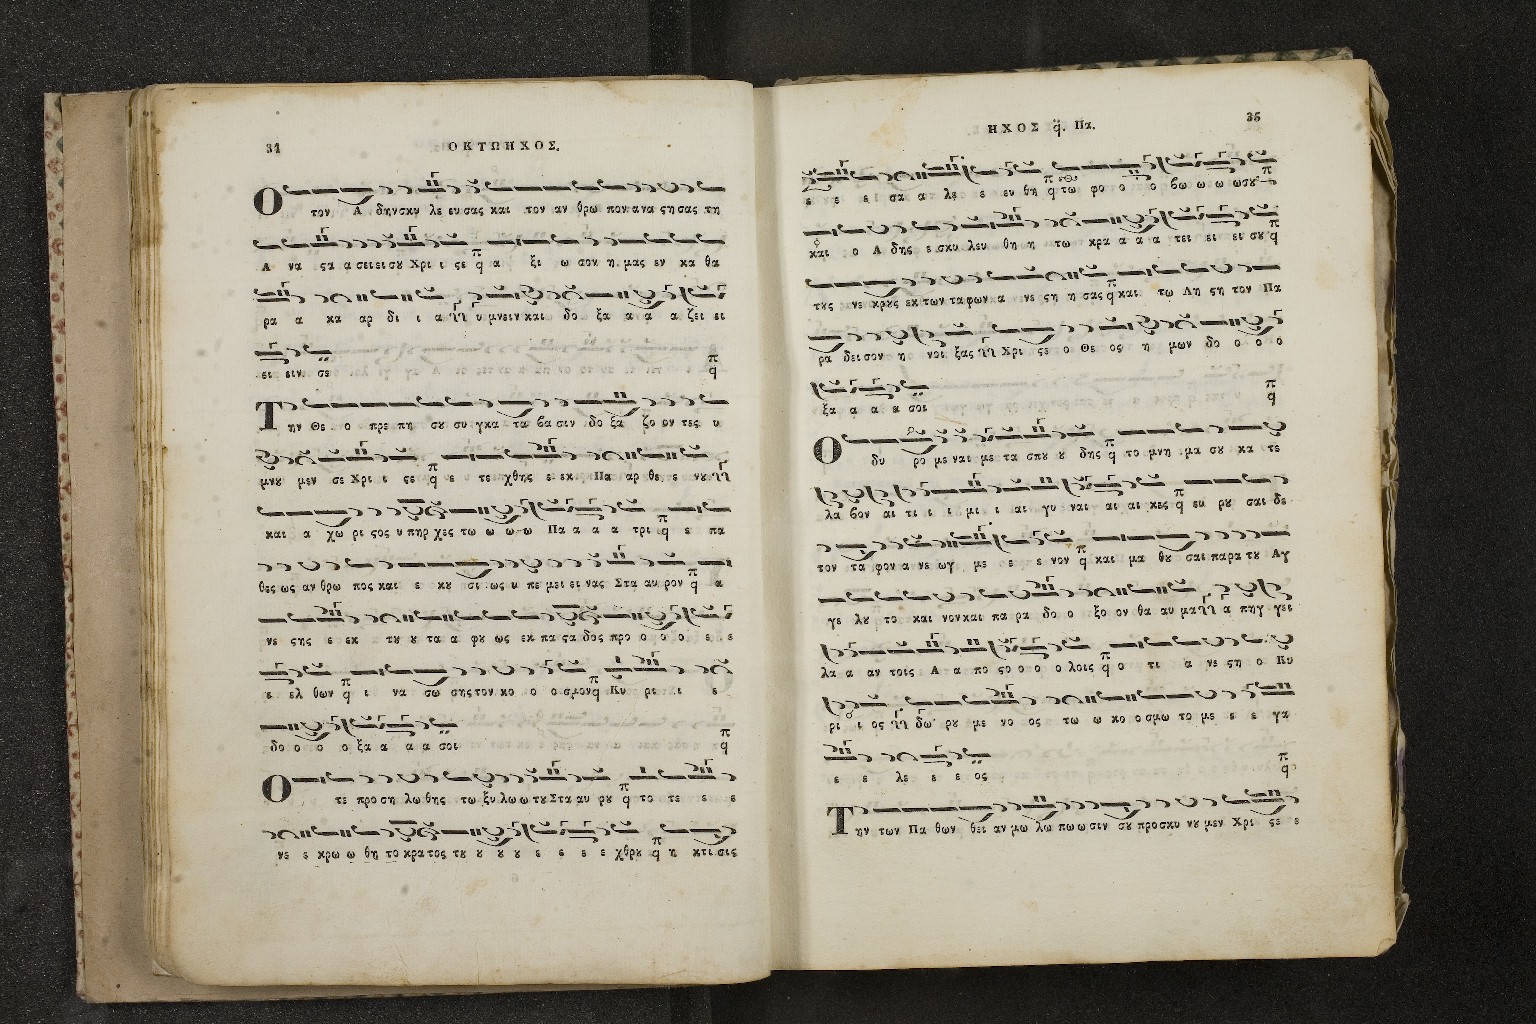 34
ΟΚΤΩΗΧΟΣ.
Ο τον Α δην σκυ λε ευ σας και τον αν θρω πον ανα ϛη σας τη
Α να ϛα α σει ει σȣ Χρι ι ϛε α ξι ω σον η μας εν κα θα
ρα α κα αρ δι ι α υ μνειν και δο ξα α α α ζει ει
ει ειν σε
Την Θε ο πρε πη σȣ συ γκα τα βα σιν δο ξα ζο ον τες υ
μνȣ μεν σε Χρι ι ϛε ε τε χθης ε εκ Πα αρ θε ε νȣ
και α χω ρι ϛος υ πηρ χες τω ω ω ω Πα α α α τρι ε πα
θες ως αν θρω πος και ε κȣ σι ως υ πε μει ει νας Στα αυ ρον α
νε ϛης ε εκ τȣ ȣ τα α φȣ ως εκ πα ϛα δος προ ο ο ο ε ε
ε ελ θων ι να σω σης τον κο ο ο σμον Κυ ρι ι ε
δο ο ο ο ξα α α α σοι
Ο τε προ ση λω θης τω ξυ λω ω τȣ Στα αυ ρȣ το τε ε ε
νε ε κρω ω θη το κρα τος τȣ ȣ ȣ ȣ ε ε ε ε χθρȣ η κτι σις
ΗΧΟΣ q̈. Πα.
35
ε ε ε ι σα α λε ε ευ θη τω φο ο ο βω ω ω ω σȣ
και ο Α δης ε σκυ λευ θη η τω κρα α α α τει ει ει σȣ
τȣς νε κρȣς εκ των τα φων α νε ϛη η σας και τω Λη ϛη τον Πα
ρα δει σον η νοι ξας Χρι ϛε ο Θε ος η μων δο ο ο ο
ξα α α α σοι
Ο δυ ρο με ναι με τα σπȣ ȣ δης το μνη μα σȣ κα τε
λα βον αι τι ι ι μι ι αι γυ ναι αι αι κες ευ ρȣ σαι δε
τον τα φον α νε ωγ με ε ε νον και μα θȣ σαι παρα τȣ Αγ
γε λȣ το και νον και πα ρα δο ο ξο ον θα αυ μα α πηγ γει
λα α αν τοις Α α πο ϛο ο ο ο λοις ο τι α νε ϛη ο Κυ
ρι ι ος δω ρȣ με νο ος τω ω κο ο σμω το με ε ε γα
ε ε λε ε ε ος
Την των Πα θων θει αν μω λω πω ω σιν σȣ προ σκυ νȣ μεν Χρι ϛε ε